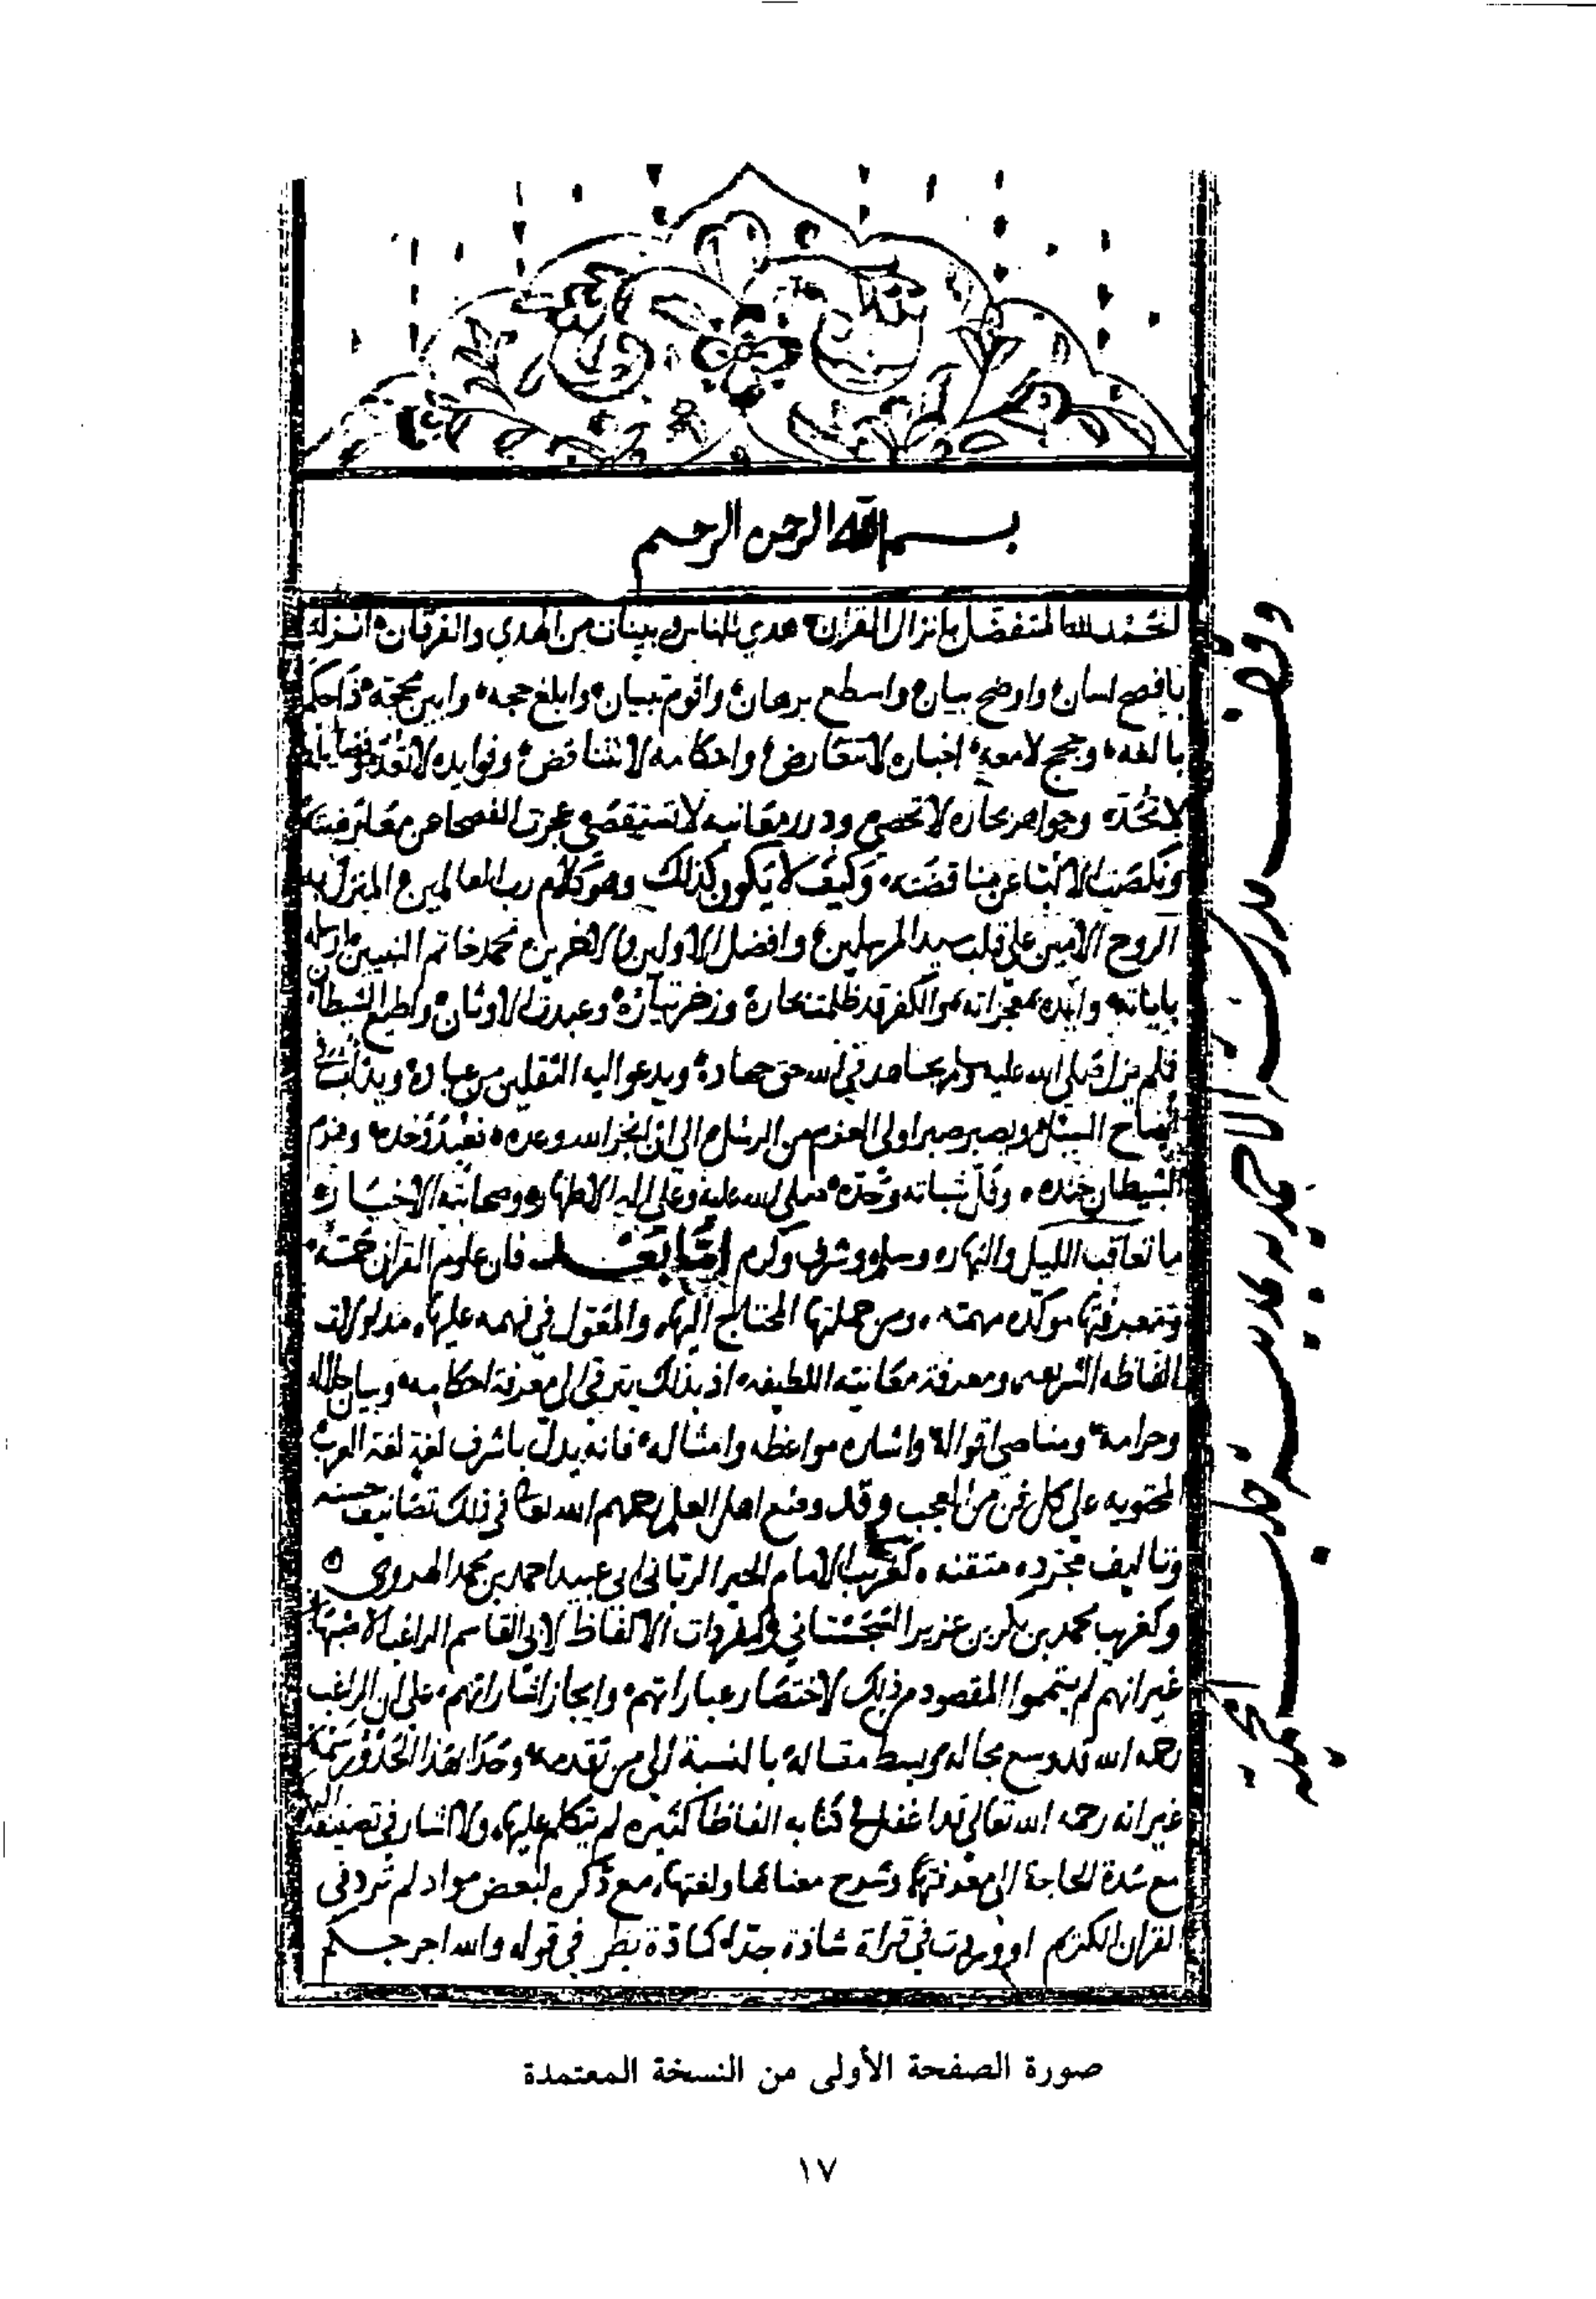 بسم الله الرحمن الرحيم
الحمد لله المتفضل بانزال القران هدي للناس وبينات من الهدي والفرقان انزله
بافصح لسان واوضح بيان واسطع برهان واقوم تبيان وابلغ حجه وابين محجة ذا حكم
بالغه وحجج لامعه اخباره لا تتعارض واحكامه لا تتناقض وفوايده لا تعد وفضايله
لا تحد وجواهر بحاره لا تحصى ودرر معانيه لا تستقصى عجزت الفصحا عن معارضته
ونكصت الالبا عن مناقضته وكيف لا يكون كذلك وهو كلام رب العالمين المنزل به
الروح الامين على قلب سيد المرسلين وافضل الاولين والاخرين محمد خاتم النبيين ارسله
باياته وايده بمعجزاته والكفر قد طمت بحاره وزخر تياره وعبدت الاوثان واطيع الشيطان
فلم يزل صلى الله عليه وسلم يجاهد في الله حق جهاده ويدعو اليه الثقلين من عباده ويداب في
ايضاح السبل ويصبر صبر اولى العزم من الرسل الى ان انجز الله وعده فعبد وحده وهزم
الشيطان جنده وفل شباته وحده صلى الله عليه وعلى اله الاطهار وصحابته الاخيار
ما تعاقب الليل والنهار وسلم وشرف وكرم اما بعد فان علوم القران جمة
ومعرفتها موكده مهمته ومن جملتها المحتاج اليها والمعول في فهمه عليها مدلولات
الفاظه الشريفه ومعرفة معانيه اللطيفه اذ بذلك يترقى الى معرفة احكامه وبيان حلاله
وحرامه ومناصى اقواله واشاره مواعظه وامثاله فانه يدل باشرف لغة لغة العرب
المحتويه على كل فن من العجب وقد وضع اهل العلم رحمهم الله تعالى في ذلك تصانيف حسنه
وتاليف مجرده متقنه كغريب الامام الحبر الرباني ابى عبيد احمد بن محمد الهروى
وكغريب محمد بن بكر بن عزير السجستاني وكمفردات الالفاظ لابى القاسم الراغب الاصبهاني
غير انهم لم يتمموا المقصود من ذلك لاختصار عباراتهم وايجاز اشاراتهم على ان الراغب
رحمه الله قد وسع مجاله وبسط مقاله بالنسبة الى من تقدمه وحذا بهذا الحذو رسمه
غير انه رحمه الله تعالى قد اغفل في كتابه الفاظا كثيره لم يتكلم عليها ولا اشار في تصنيفه اليها
مع شدة الحاجة الى معرفتها وشرح معناها ولغتها مع ذكره لبعض مواد لم ترد فى
القران الكريم او وردت في قراة شاذة جدا كمادة بظر في قوله والله اجرجكم
وقف مدرسة الاحمديه بمدينه حلب المحميه
صورة الصفحة الأولى من النسخة المعتمدة
١٧